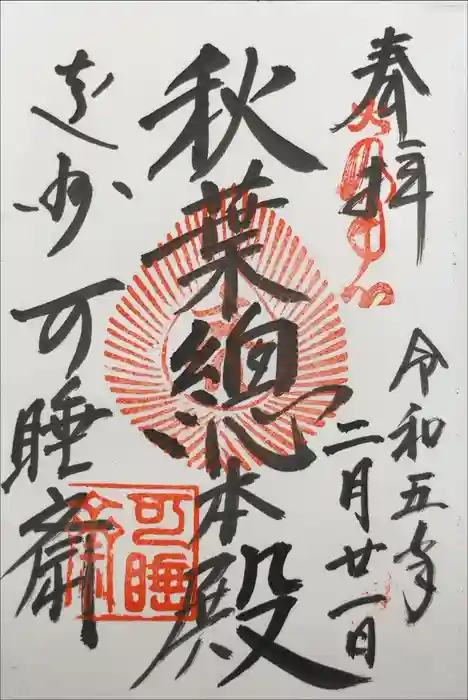 奉拝
令和五年
二月廿一日
秋葉總本殿
遠州 可睡齋
可睡齋